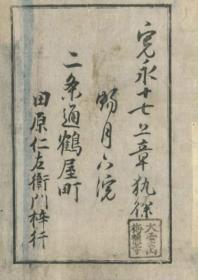 寛永十七上章執徐
暢月六蓂
二条通鶴屋町
田原仁左衛門梓行